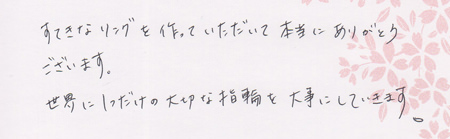 すてきなリングを作っていただいて本当にありがとう
ございます。
世界に1つだけの大切な指輪を大事にしていきます。